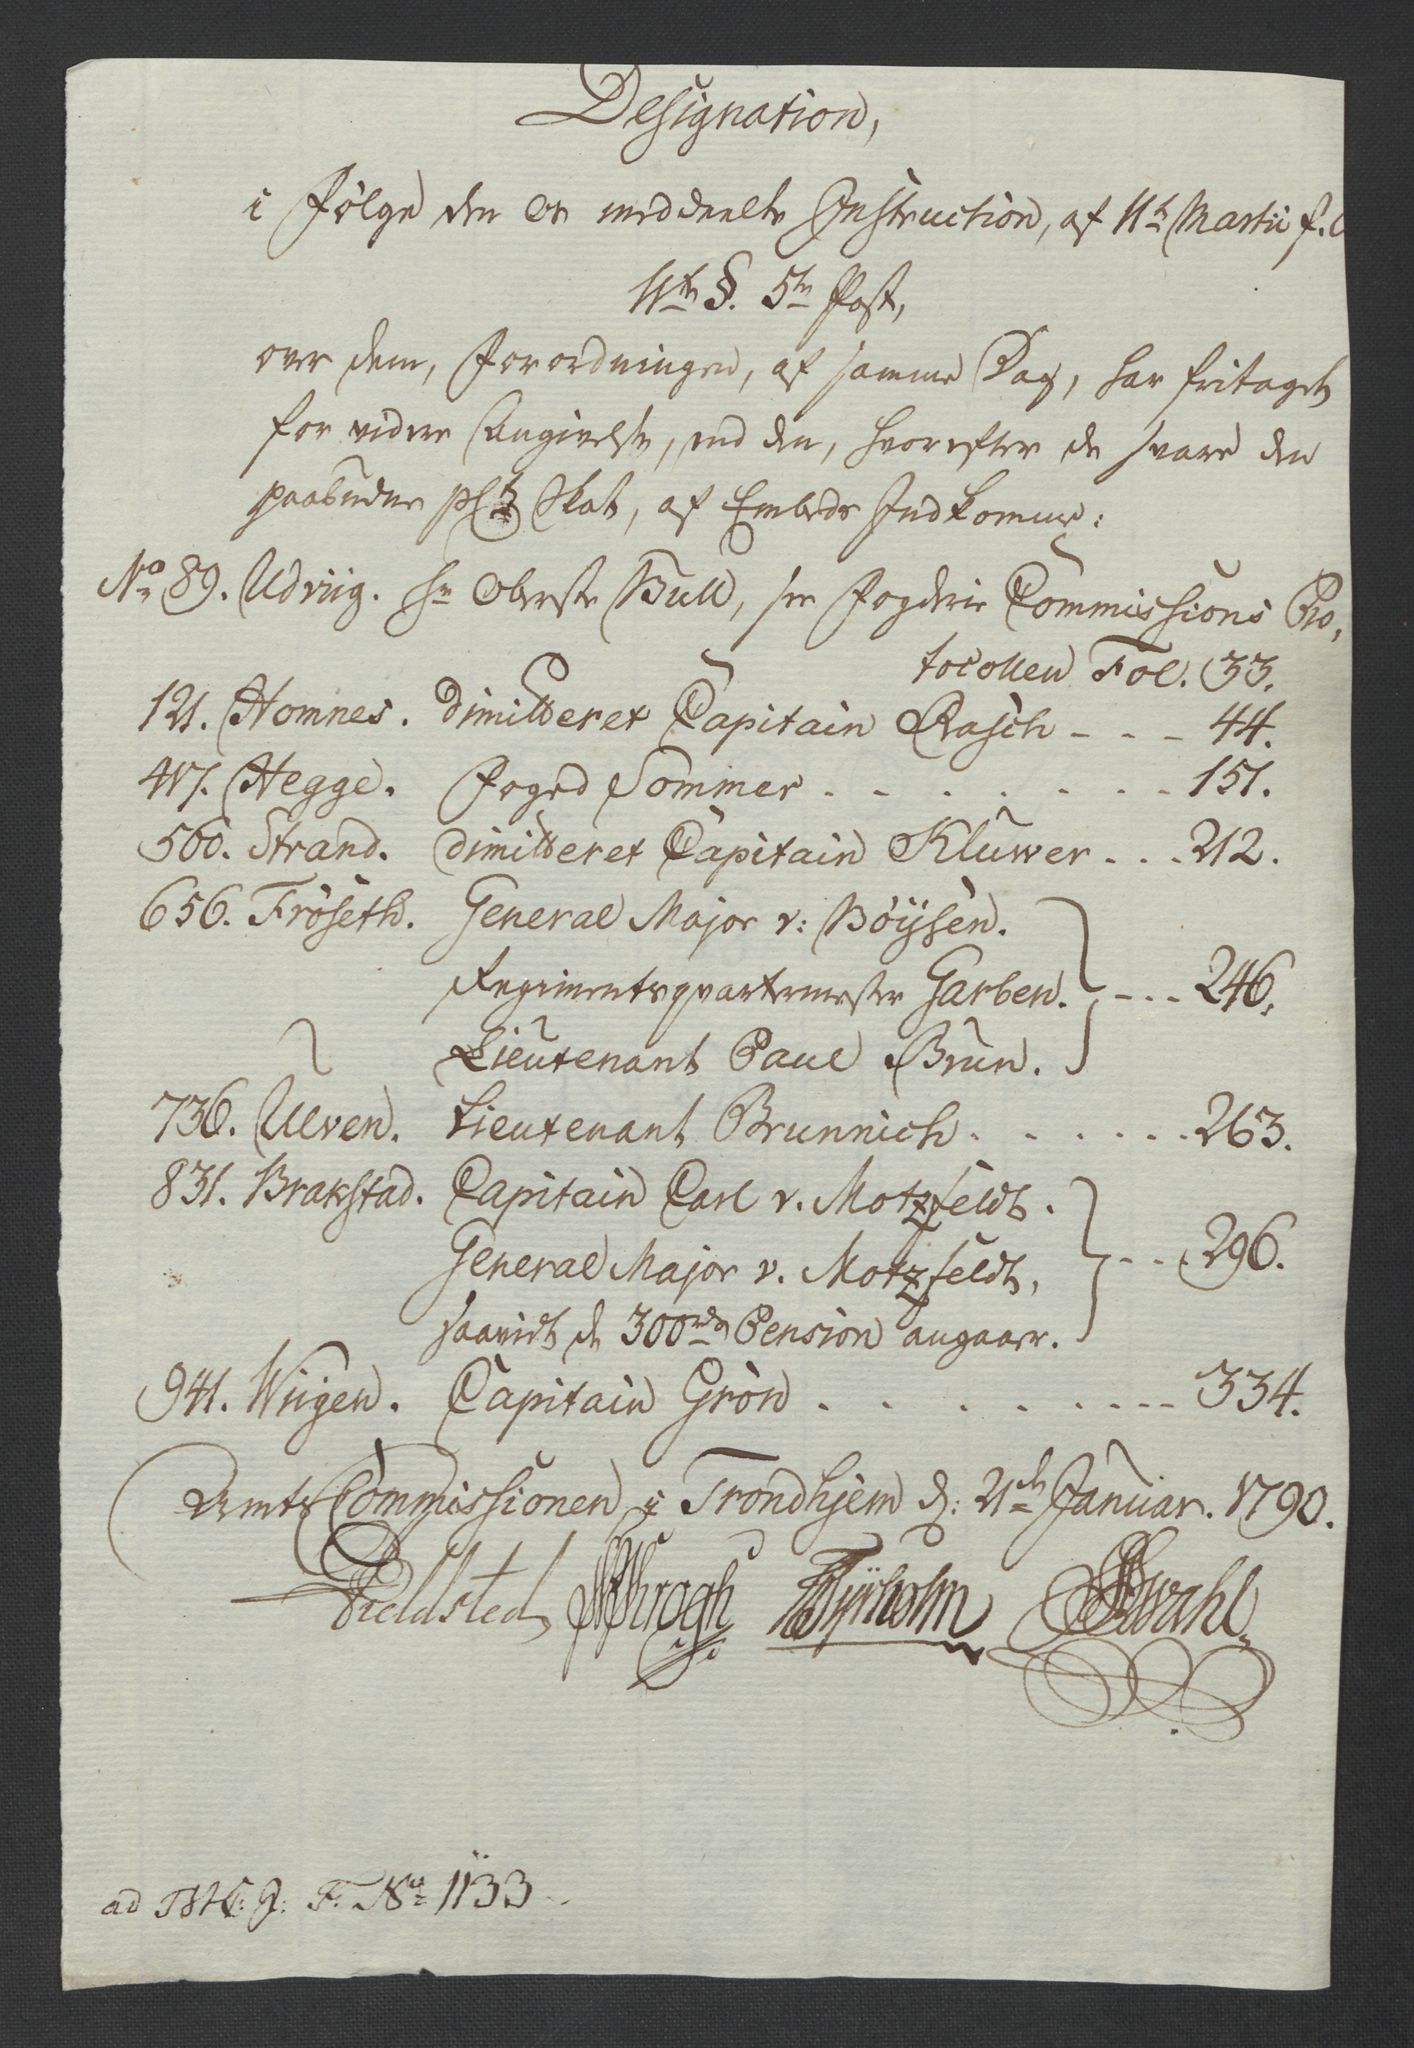 Designation,
i Følge den os meddeelte Instruction, af 11te Martii f. A
11te §. 5te Post,
over dem, Forordningen, af samme Dag, har fritaget
for videre Angivelse, end den, hvorefter de svare den
paabudne pCt Skat, af Embeds Indkomme:
No 89. Udviig. Hr Oberste Bull, see Fogderie Commissions Pro,
tocollen Fol. 33.
121. Homnes. dimitteret Capitain Rasch - - - 44.
417. Hegge. Foged Sommer . - - . . - - - 151.
560. Strand. dimitteret Capitain Klüwer . . . 212.
656. Fröseth. General Major v: Böÿsen.
Regimentsqvarteermester Garben. - - - 246.
Lieutenant Paul Brun.
736. Ulven. Lieutenant Brunnich . . . . . . . 263.
831. Brakstad. Capitain Carl v. Motzfeldt.
General Major v. Motzfeldt, - - . 296.
saavidt de 300rd Pension angaaer.
941. Wiigen. Capitain Grön . . . . . - - - - 334.
Amts Commissionen i Trondhjem d: 21de Januar. 1790.
Fieldsted Krogh Tÿrholm Swahl
ad F. No 1133